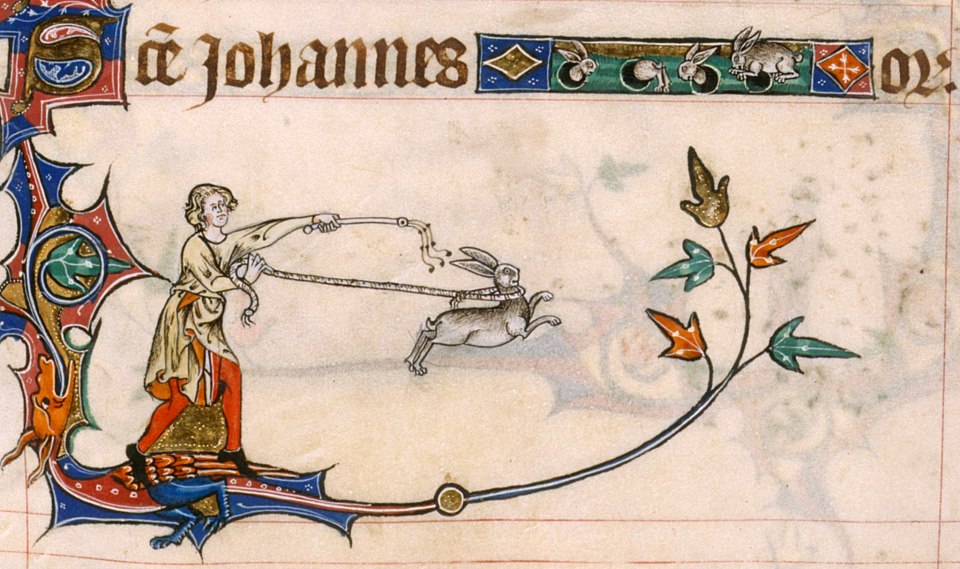 Sc̄e Johannes oꝛ